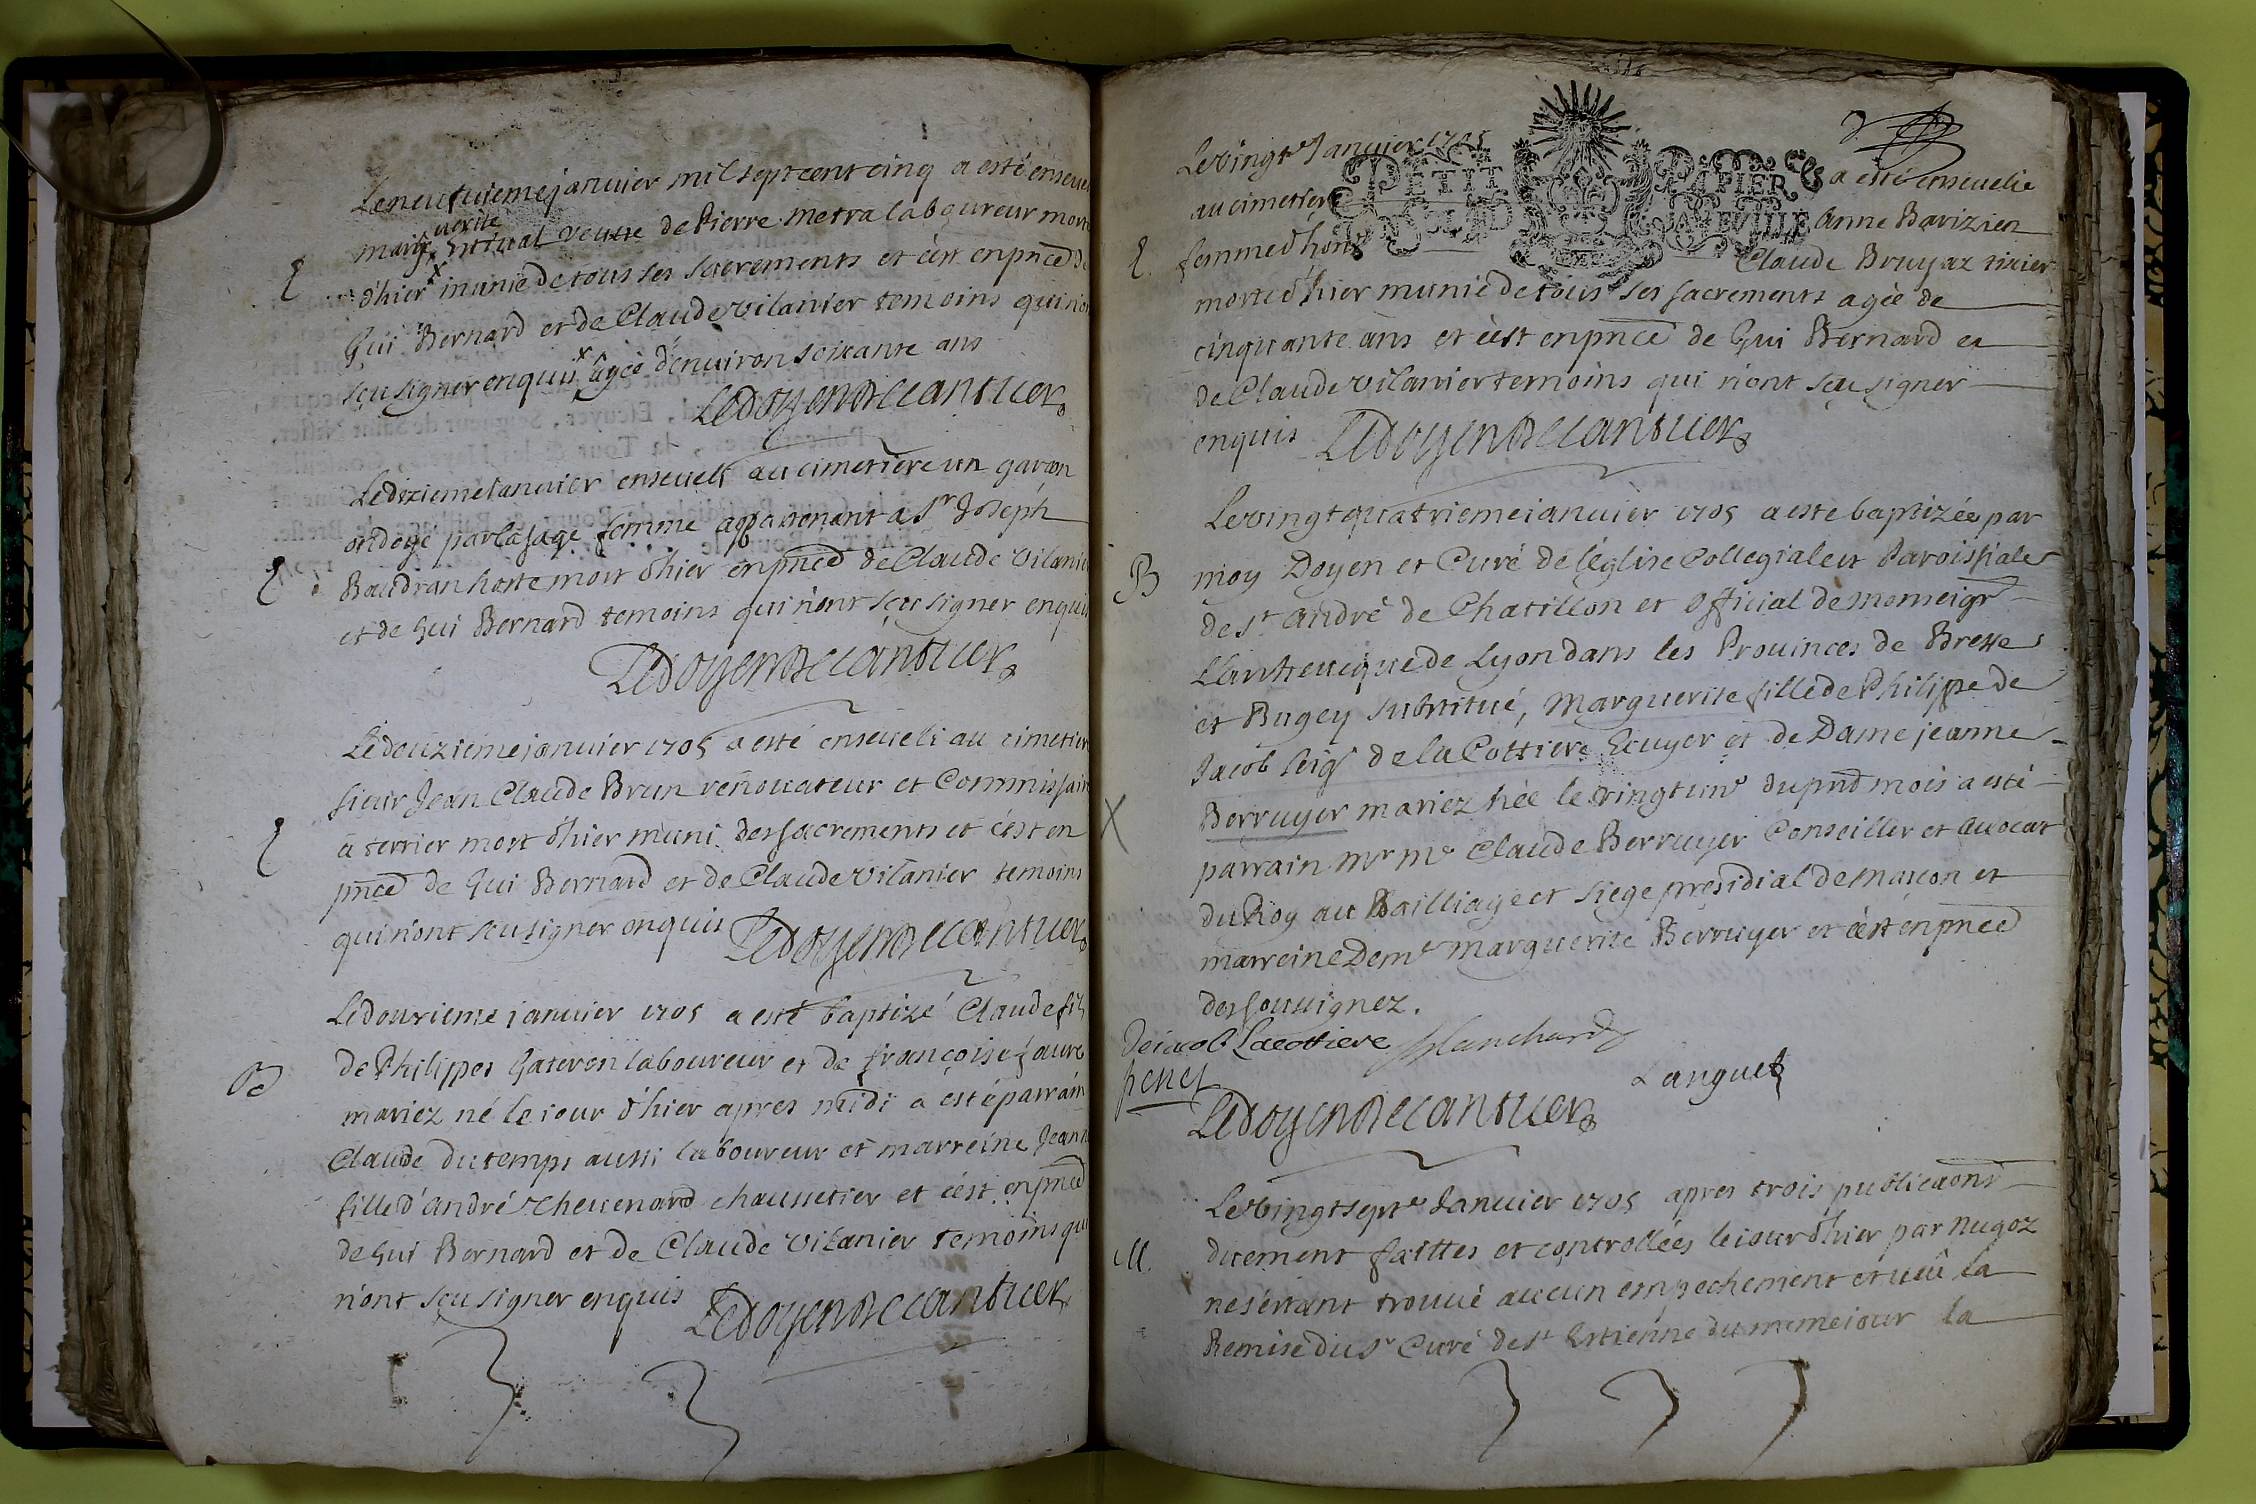 Le neufuieme januier mil sept cent cinq a esté enseue
marg uerite veuue de Pierre metra laboureur morte
E
d'hier x munie de tous ses sacrements et c'est en pnce de
Gui Bernard et de Claude vilanier temoins qui n'on
sçu signer enquis x âgée d'enuiron soixante ans
Ledoyendecantuer
Le dixieme januier enseueli au cimetiere un garçon
ondoyé par la sage femme appartenant a Sr Joseph
E
Baudran hoste mort d'hier en pnce de Claude vilanie
et de Gui Bernard temoins qui n'ont sçu signer enquis
Ledoyendecantuer
Le douzieme januier 1705 a esté enseueli au cimetier
sieur Jean Claude Brun renouateur et Commissaire
E
a terrier mort d'hier muni des sacrements et c'est en
pnce de Gui Bernard et de Claude vilanier temoins
qui n'ont sçu signer enquis Ledoyendecantuer
Le douzieme januier 1705 a esté baptizé Claude fils
de Philippes Gateron laboureur et de françoise faure
B
mariez né le iour d'hier apres midi a esté parrain
Claude dutemps aussi laboureur et marreine Jeann
fille d'andré Cheuenard chaussetier et c'est en pnce
de Gui Bernard et de Claude vilanier temoins qui
n'ont sçu signer enquis Ledoyendecantuer
Le vingte Januier 1705 a esté enseuelie
PETIT PAPIER
au cimetiere Anne Barizien
E. femme d'hon Claude Bruyaz
morte d'hier munie de tous ses sacrements agée de
cinquante ans et c'est en pnce de Gui Bernard et
de Claude vilanier temoins qui n'ont sçu signer
enquis Ledoyendecantuer
Le vingt quatrieme januier 1705 a este baptizée par
B moy Doyen et Curé de l'église Collegiale et Paroissiale
de St André de Chatillon et official de monseigr
L'archeueque de Lyon dans les Prouinces de Bresse
et Bugey substitué, Marguerite fille de Philippe de
Jacob seigr de la Cottiere Ecuyer et de Dame jeanne
X Berruyer mariez née le vingt une du pnd mois a esté
parrain Mr Me Claude Berruyer Conseiller et Auocat
du Roy au Bailliage et siege presidial de Macon et
marreine Deme Marguerite Berruyer et c'est en pnce
des soussignez.
De iacob Lacottiere Blanchard
penet Languet
Ledoyendecantuer
Le vingt septe Januier 1705 apres trois publicaons
M. duement faittes et controllées le iour d'hier par Nugoz
ne s'estant trouué aucun empechement et ueû la
Remise du Sr Curé de St Estienne du meme iour la